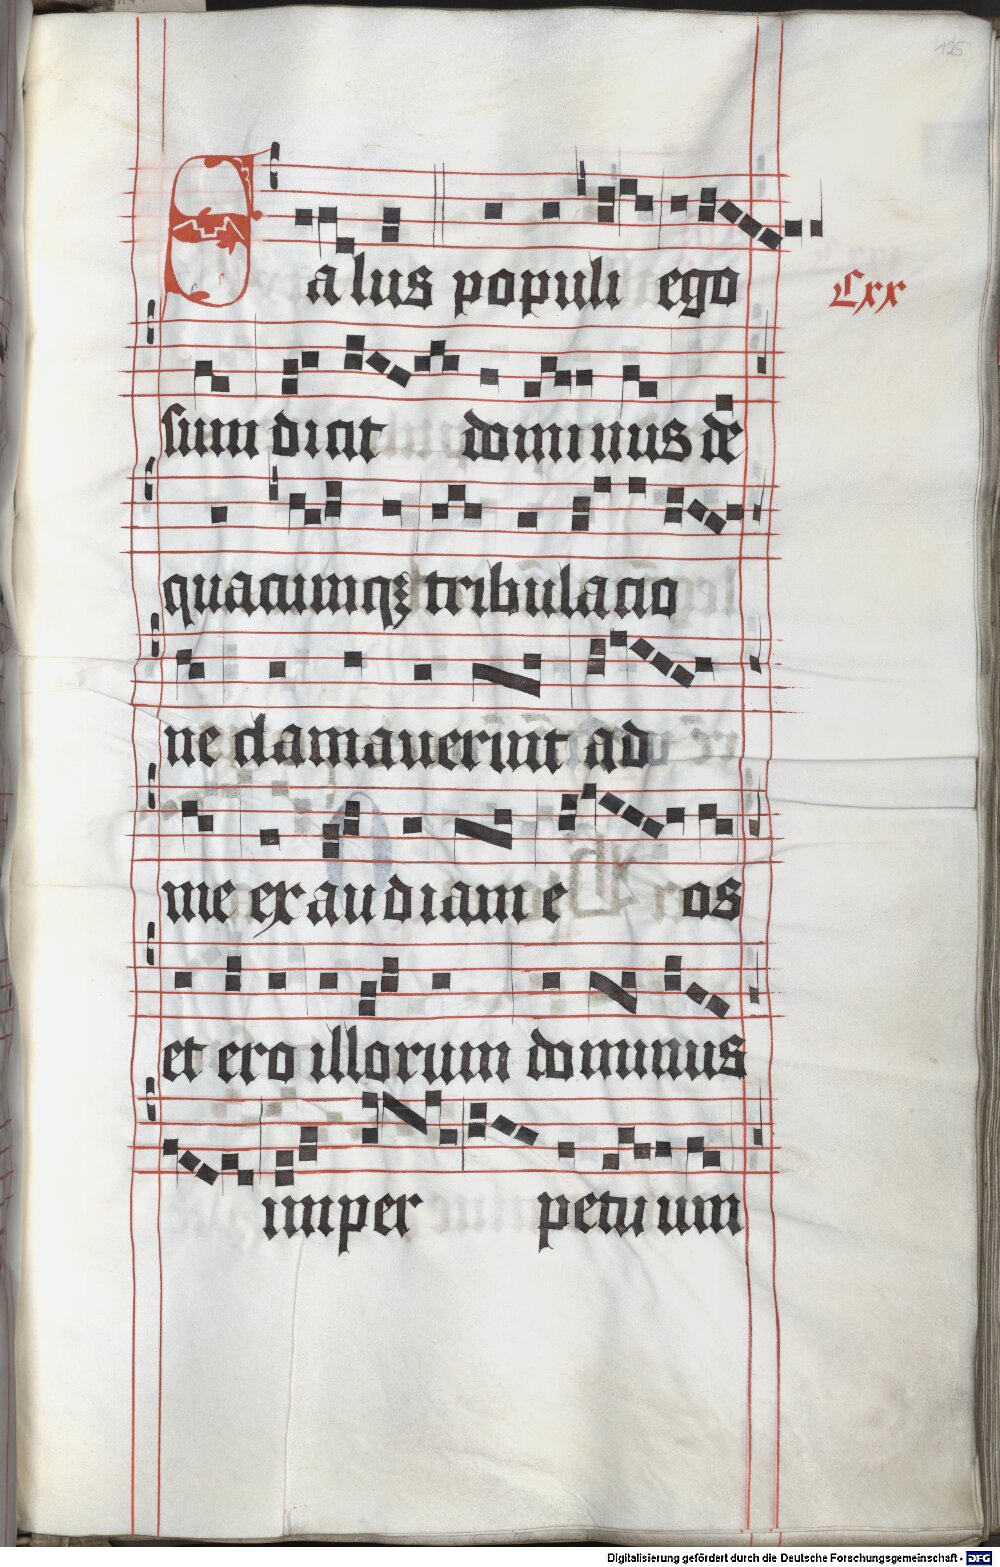 125
Salus populi ego
Cxx
sum dicit dominus de
quacumqꝫ tribulacio
ne clamauerint ad
me exaudiam e os
et ero illorum dominus
imper petuum
Digitalisierung gefördert durch die Deutsche Forschungsgemeinschaft - DFG